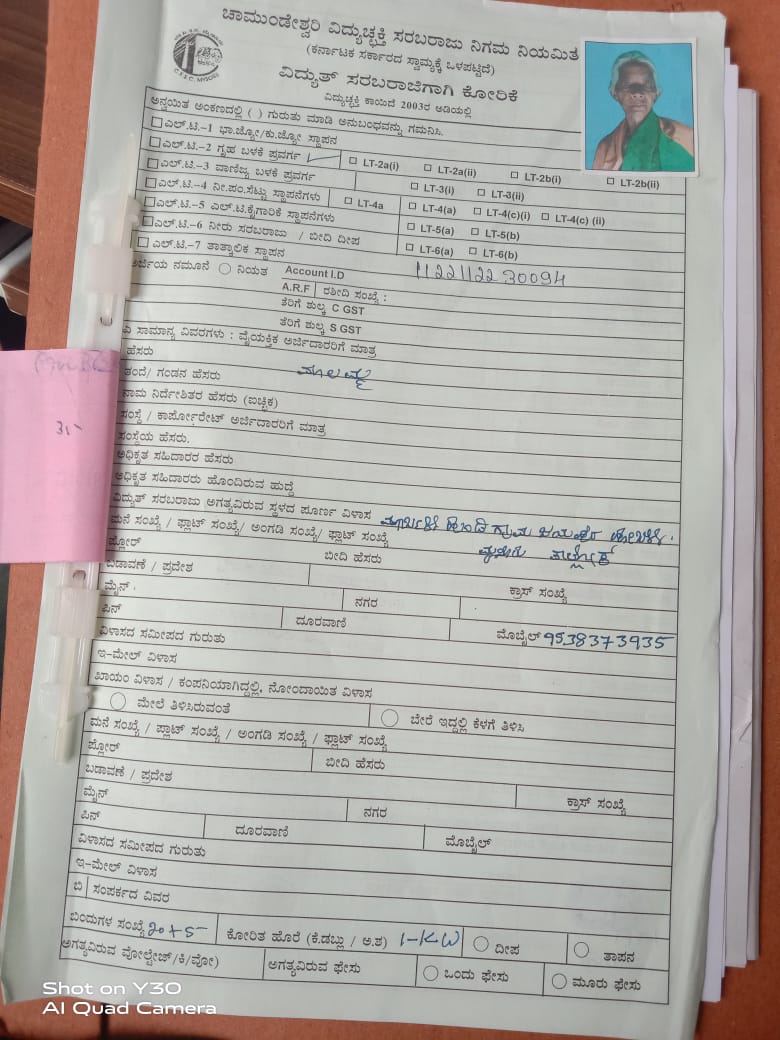 ಚಾಮುಂಡೇಶ್ವರಿ ವಿದ್ಯುಚ್ಛಕ್ತಿ ಸರಬರಾಜು ನಿಗಮ ನಿಯಮಿತ
(ಕರ್ನಾಟಕ ಸರ್ಕಾರದ ಸ್ವಾಮ್ಯಕ್ಕೆ ಒಳಪಟ್ಟಿದೆ)
C.E.S.C. MYSORE
ವಿದ್ಯುತ್ ಸರಬರಾಜಿಗಾಗಿ ಕೋರಿಕೆ
ವಿದ್ಯುಚ್ಛಕ್ತಿ ಕಾಯಿದೆ 2003ರ ಅಡಿಯಲ್ಲಿ
ಅನ್ವಯಿತ ಅಂಕಣದಲ್ಲಿ ( ) ಗುರುತು ಮಾಡಿ ಅನುಬಂಧವನ್ನು ಗಮನಿಸಿ.
ಎಲ್.ಟಿ.-1 ಭಾ.ಜ್ಯೋ/ಕು.ಜ್ಯೋ ಸ್ಥಾಪನ
ಎಲ್.ಟಿ.-2 ಗೃಹ ಬಳಕೆ ಪ್ರವರ್ಗ LT-2a(i) LT-2a(ii) LT-2b(i) LT-2b(ii)
ಎಲ್.ಟಿ.-3 ವಾಣಿಜ್ಯ ಬಳಕೆ ಪ್ರವರ್ಗ LT-3(i) LT-3(ii)
ಎಲ್.ಟಿ.-4 ನೀ.ಪಂ.ಸೆಟ್ಟು ಸ್ಥಾಪನೆಗಳು LT-4a LT-4(a) LT-4(c)(i) LT-4(c) (ii)
ಎಲ್.ಟಿ.-5 ಎಲ್.ಟಿ.ಕೈಗಾರಿಕೆ ಸ್ಥಾಪನೆಗಳು LT-5(a) LT-5(b)
ಎಲ್.ಟಿ.-6 ನೀರು ಸರಬರಾಜು / ಬೀದಿ ದೀಪ LT-6(a) LT-6(b)
ಎಲ್.ಟಿ.-7 ತಾತ್ಕಾಲಿಕ ಸ್ಥಾಪನ
ಅರ್ಜಿಯ ನಮೂನೆ ನಿಯತ Account I.D 1122112230094
A.R.F ರಶೀದಿ ಸಂಖ್ಯೆ :
ತೆರಿಗೆ ಶುಲ್ಕ C GST
ತೆರಿಗೆ ಶುಲ್ಕ S GST
ಸಾಮಾನ್ಯ ವಿವರಗಳು : ವೈಯಕ್ತಿಕ ಅರ್ಜಿದಾರರಿಗೆ ಮಾತ್ರ
ಹೆಸರು
ತಂದೆ/ ಗಂಡನ ಹೆಸರು
ನಾಮ ನಿರ್ದೇಶಿತರ ಹೆಸರು (ಐಚ್ಛಿಕ)
ಸಂಸ್ಥೆ / ಕಾರ್ಪೋರೇಟ್ ಅರ್ಜಿದಾರರಿಗೆ ಮಾತ್ರ
ಸಂಸ್ಥೆಯ ಹೆಸರು.
ಅಧಿಕೃತ ಸಹಿದಾರರ ಹೆಸರು
ಅಧಿಕೃತ ಸಹಿದಾರರು ಹೊಂದಿರುವ ಹುದ್ದೆ
ವಿದ್ಯುತ್ ಸರಬರಾಜು ಅಗತ್ಯವಿರುವ ಸ್ಥಳದ ಪೂರ್ಣ ವಿಳಾಸ
ಮನೆ ಸಂಖ್ಯೆ / ಫ್ಲಾಟ್ ಸಂಖ್ಯೆ/ ಅಂಗಡಿ ಸಂಖ್ಯೆ/ ಫ್ಲಾಟ್ ಸಂಖ್ಯೆ
ಫ್ಲೋರ್ ಬೀದಿ ಹೆಸರು
ಬಡಾವಣೆ / ಪ್ರದೇಶ
ಮೈನ್ ನಗರ ಕ್ರಾಸ್ ಸಂಖ್ಯೆ
ಪಿನ್ ದೂರವಾಣಿ ಮೊಬೈಲ್ 9538373935
ವಿಳಾಸದ ಸಮೀಪದ ಗುರುತು
ಇ-ಮೇಲ್ ವಿಳಾಸ
ಖಾಯಂ ವಿಳಾಸ / ಕಂಪನಿಯಾಗಿದ್ದಲ್ಲಿ, ನೋಂದಾಯಿತ ವಿಳಾಸ
ಮೇಲೆ ತಿಳಿಸಿರುವಂತೆ ಬೇರೆ ಇದ್ದಲ್ಲಿ ಕೆಳಗೆ ತಿಳಿಸಿ
ಮನೆ ಸಂಖ್ಯೆ / ಪ್ಲಾಟ್ ಸಂಖ್ಯೆ / ಅಂಗಡಿ ಸಂಖ್ಯೆ / ಫ್ಲಾಟ್ ಸಂಖ್ಯೆ
ಫ್ಲೋರ್ ಬೀದಿ ಹೆಸರು
ಬಡಾವಣೆ / ಪ್ರದೇಶ
ಮೈನ್ ನಗರ ಕ್ರಾಸ್ ಸಂಖ್ಯೆ
ಪಿನ್ ದೂರವಾಣಿ ಮೊಬೈಲ್
ವಿಳಾಸದ ಸಮೀಪದ ಗುರುತು
ಇ-ಮೇಲ್ ವಿಳಾಸ
ಬಿ ಸಂಪರ್ಕದ ವಿವರ
ಬಿಂದುಗಳ ಸಂಖ್ಯೆ 20+5 ಕೋರಿತ ಹೊರೆ (ಕೆ.ಡಬ್ಲು / ಅ.ಶ) 1-KW ದೀಪ ತಾಪನ
ಅಗತ್ಯವಿರುವ ವೋಲ್ಟೇಜ್/ಕಿ/ವೋ) ಅಗತ್ಯವಿರುವ ಫೇಸು ಒಂದು ಫೇಸು ಮೂರು ಫೇಸು
Shot on Y30
AI Quad Camera